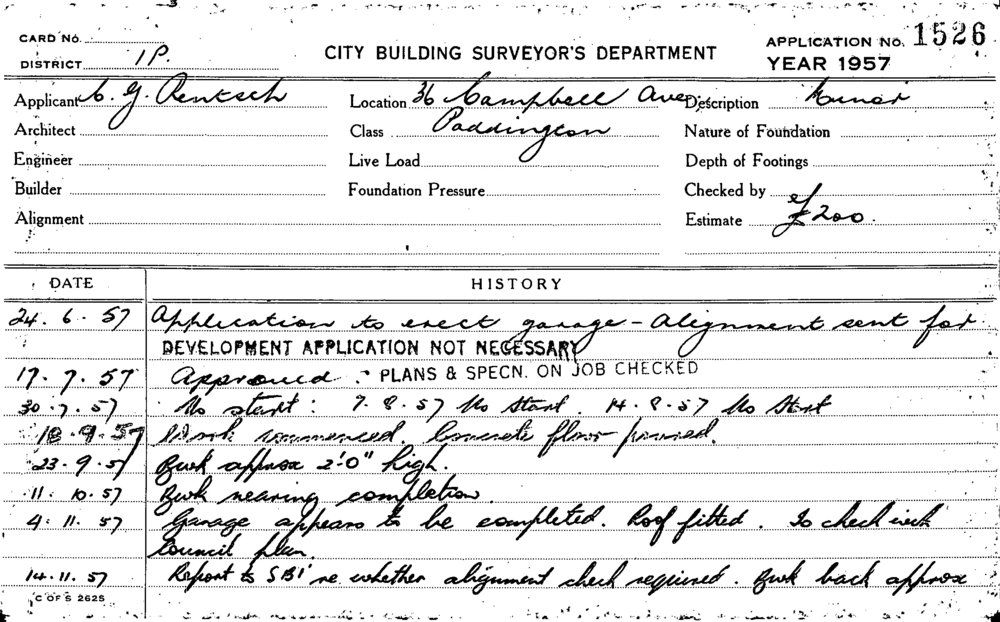 CARD No.
DISTRICT 1P.
CITY BUILDING SURVEYOR'S DEPARTMENT
APPLICATION No. 1526
YEAR 1957
Applicant C. G. Rentsch
Location 36 Campbell Ave
Description Minor
Architect
Class Paddington
Nature of Foundation
Engineer
Live Load
Depth of Footings
Builder
Foundation Pressure
Checked by
Alignment
Estimate £200.
DATE
HISTORY
24. 6. 57 Application to erect garage - Alignment sent for
DEVELOPMENT APPLICATION NOT NECESSARY
17. 7. 57 Approved. - PLANS & SPECN. ON JOB CHECKED
30. 7. 57 No start: 7. 8. 57 No Start. 14. 8. 57 No Start
18. 9. 57 Work commenced. Concrete floor poured.
23. 9. 57 Bwk approx 2'0" high.
11. 10. 57 Bwk nearing completion.
4. 11. 57 Garage appears to be completed. Roof fitted. To check with
Council plan.
14. 11. 57 Report to SBI re whether alignment check required. Bwk back approx
C OF S 2625